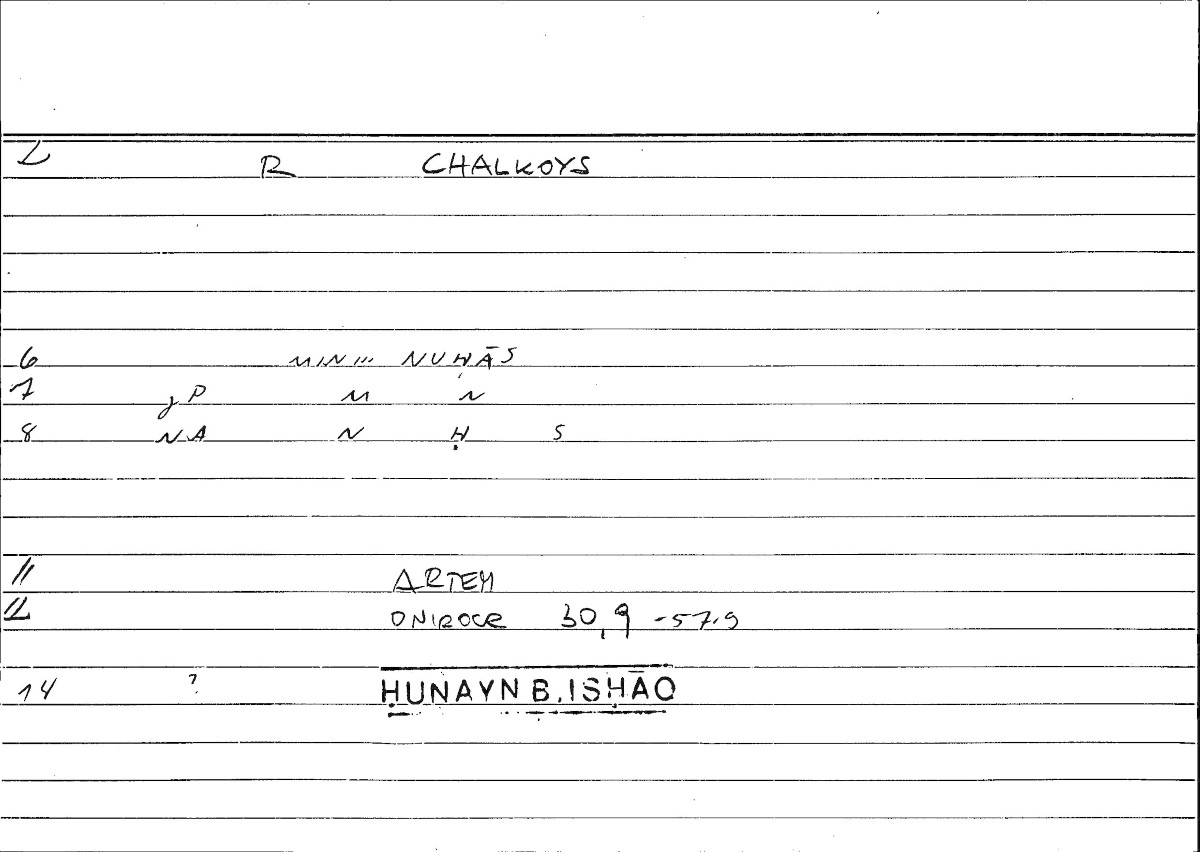 2 R CHALKOYS
6 MIN ... NUḤĀS
7 gP M N
8 NA N Ḥ S
11 ARTEM
12 ONIROCR 30,9 -57.9
14 ? ḤUNAYN B. ISḤĀQ